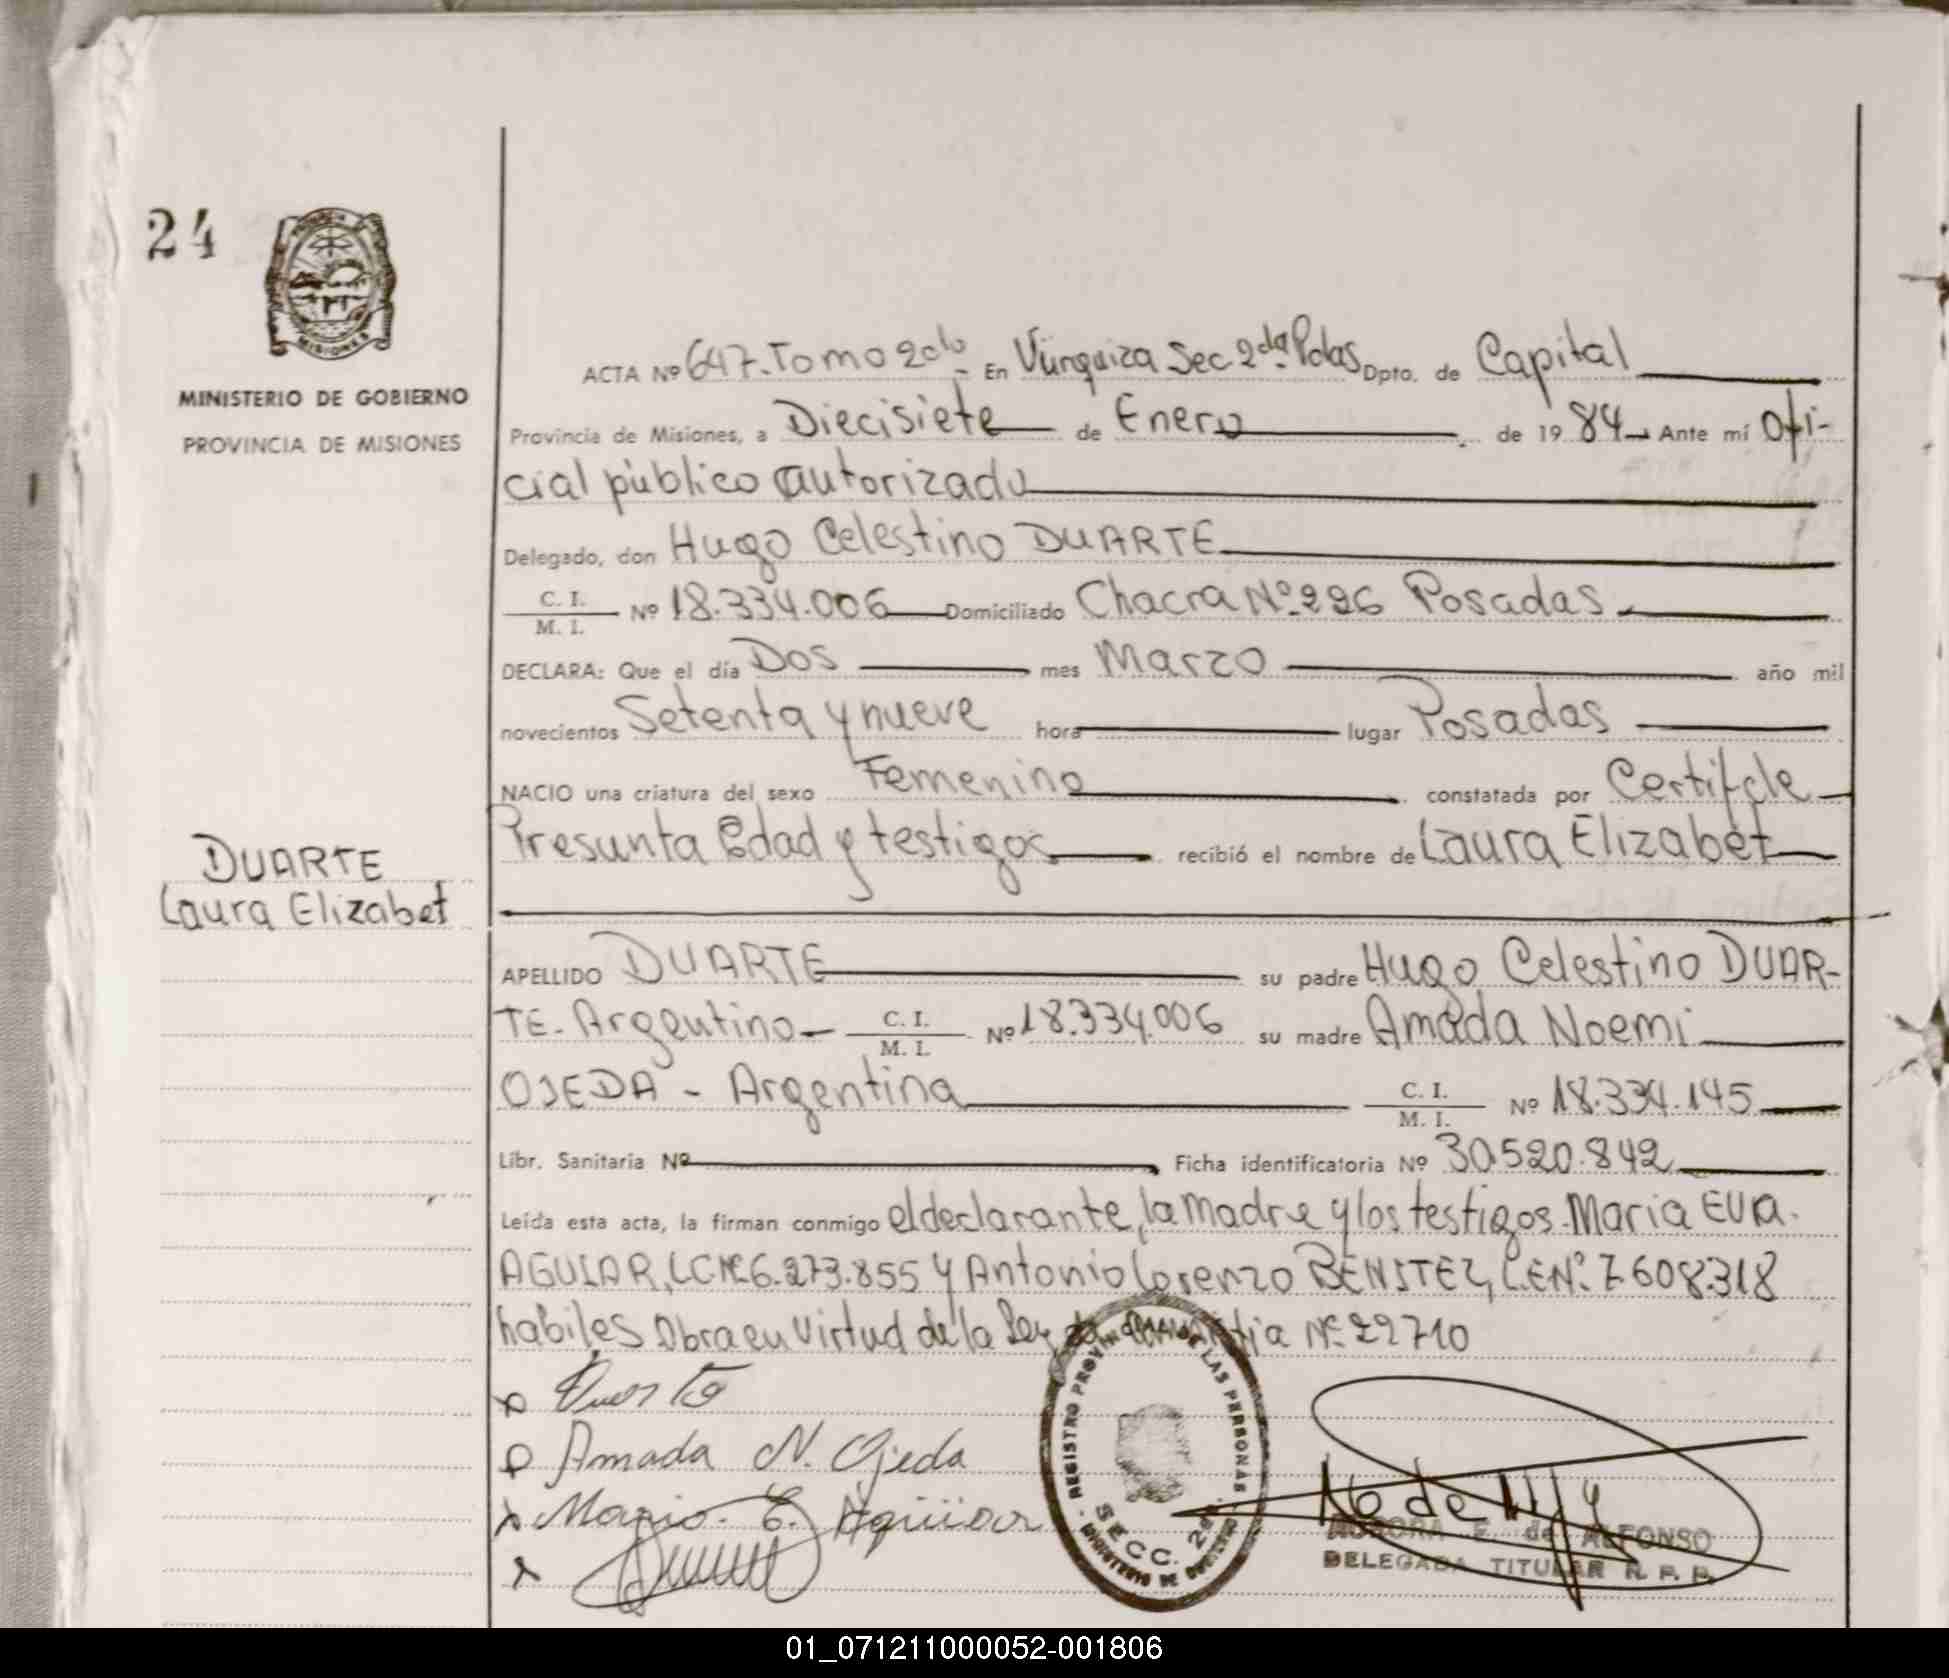 24
MINISTERIO DE GOBIERNO
PROVINCIA DE MISIONES
ACTA Nº 647. Tomo 2do - En Vúrquiza Sec. 2da. Pdas Dpto. de Capital
Provincia de Misiones, a Diecisiete de Enero de 19 84 Ante mí Ofi-
cial público autorizado
Delegado, don Hugo Celestino DUARTE
C. I.
M. I. Nº 18.334.006 Domiciliado Chacra Nº 226 Posadas
DECLARA: Que el día Dos mes Marzo año mil
novecientos Setenta y nueve hora lugar Posadas
NACIO una criatura del sexo Femenino constatada por Certif. de
Presunta Edad y testigos recibió el nombre de Laura Elizabet
DUARTE
Laura Elizabet
APELLIDO DUARTE su padre Hugo Celestino DUAR-
TE. Argentino C. I. M. I. Nº 18.334.006 su madre Amada Noemi
OJEDA - Argentina C. I. M. I. Nº 18.334.145
Libr. Sanitaria Nº Ficha identificatoria Nº 30.520.842
Leída esta acta, la firman conmigo el declarante, la madre y los testigos. Maria EVA.
AGUIAR, LC Nº 6.273.855 y Antonio Lorenzo BENITEZ, L.E Nº. 7.608.318
habiles Obra en virtud de la Ley de Nº 22710
Duarte
Amada N. Ojeda
Maria. E. Aguiar
REGISTRO PROVINCIAL DE LAS PERSONAS
SECC. 2a.
AURORA E. de ALFONSO
DELEGADA TITULAR R. P. P.
01_071211000052-001806